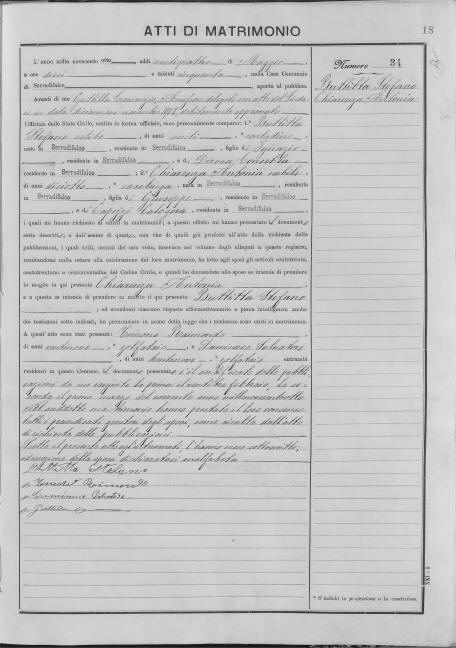 ATTI DI MATRIMONIO
18
L'anno mille novecento otto, addì ventiquattro di Maggio
a ore dieci e minuti cinquanta, nella Casa Comunale
di Serradifalco, aperta al pubblico.
Avanti di me
Uffiziale dello Stato Civile, vestito in forma uffiziale, sono personalmente comparsi: 1.° Buttitta
Stefano celibe, di anni venti
nato in Serradifalco, residente in Serradifalco, figlio di Ignazio
, residente in Serradifalco, e di Concetta
, residente in Serradifalco; 2.° Chiarenza Antonia nubile
di anni diciotto casalinga nata in Serradifalco, residente
in Serradifalco, figlia di Giuseppe, residente in Serradifalco
e di Calogera, residente in Serradifalco
i quali mi hanno richiesto di unirli in matrimonio; a questo effetto mi hanno presentato i documenti
sotto descritti; e dall'esame di questi, non che di quelli già prodotti all'atto della richiesta delle
pubblicazioni, i quali tutti, muniti del mio visto, inserisco nel volume degli allegati a questo registro,
risultandomi nulla ostare alla celebrazione del loro matrimonio, ho letto agli sposi gli articoli centotrenta,
centotrentuno e centotrentadue del Codice Civile, e quindi ho domandato allo sposo se intende di prendere
in moglie la qui presente Chiarenza Antonia
e a questa se intende di prendere in marito il qui presente Buttitta Stefano
; ed avendomi ciascuno risposto affermativamente a piena intelligenza anche
dei testimoni sotto indicati, ho pronunziato in nome della legge che i medesimi sono uniti in matrimonio.
A quest'atto sono stati presenti: Raimondo
di anni zolfataio e Salvatore
, di anni zolfataio entrambi
residenti in questo Comune. I documenti presentati è il certificato delle pubbli
cazioni da me eseguite la prima il ventitre febbraio, la se
conda il primo marzo del corrente anno millenovecentootto
Al suddetto matrimonio hanno prestato il loro consenso
genitori degli sposi, come risulta dall'atto
di richiesta delle pubblicazioni.
Letto il presente atto agli intervenuti, l'hanno meco sottoscritto,
ad eccezione della sposa dichiaratasi analfabeta
Buttitta Stefano
Raimondo
Salvatore
Numero 34
Buttitta Stefano
Chiarenza Antonia
* S'indichi la professione o la condizione.